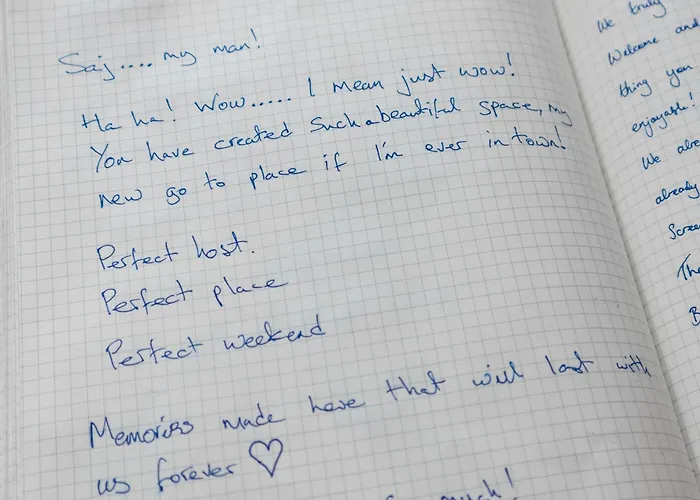 Saj.... my man!
Ha ha! Wow..... I mean just wow!
You have created such a beautiful space, my
new go to place if I'm ever in town!
Perfect host.
Perfect place
Perfect weekend
Memories made here that will last with
us forever ♡
much!
We truly
Welcome and
thing you
enjoyable!
We alre
already
Scree
The
B